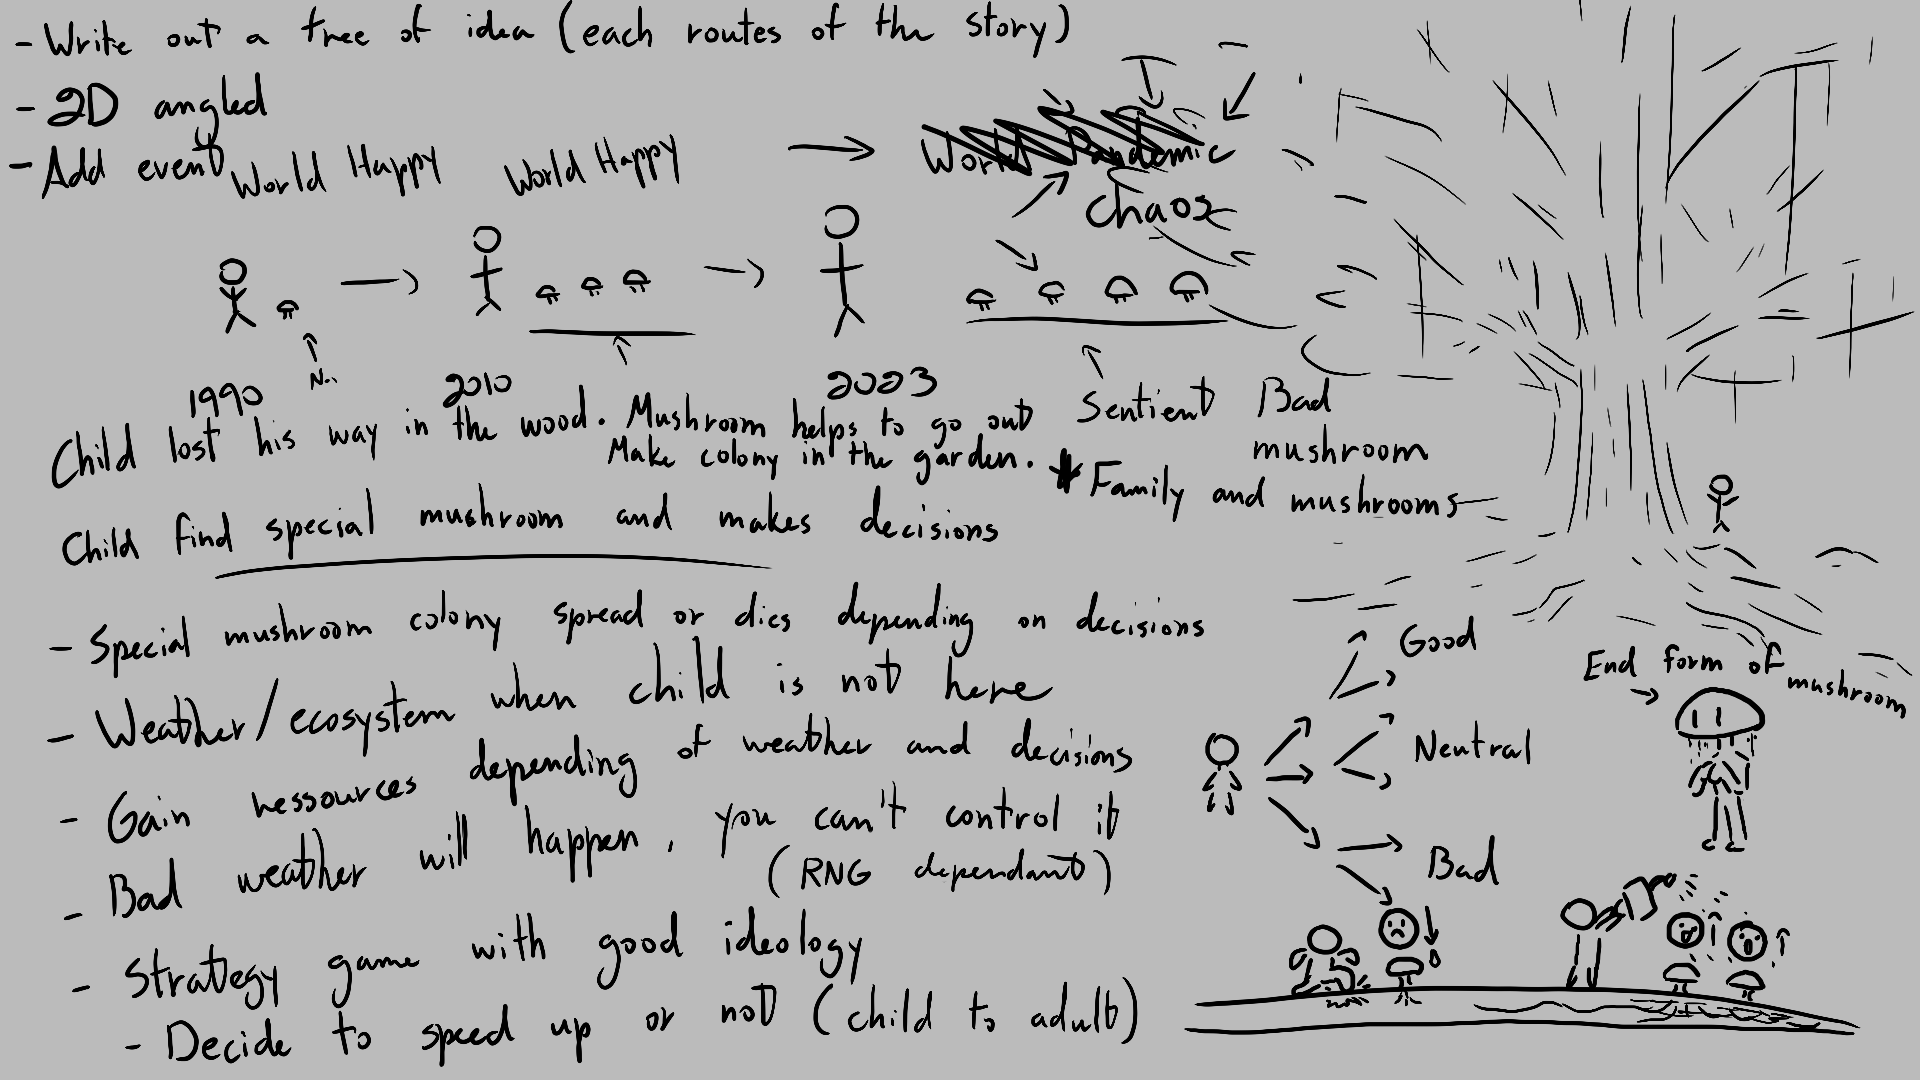 - Write out a tree of idea (each routes of the story)
- 2D angled
- Add event
World Happy
World Happy
World Pandemic
Chaos
1990
2010
2023
Child lost his way in the wood. Mushroom helps to go out
Make colony in the garden.
Sentient Bad
mushroom
Family and mushrooms
Child find special mushroom and makes decisions
- Special mushroom colony spread or dies depending on decisions
- Weather/ecosystem when child is not here
- Gain ressources depending of weather and decisions
- Bad weather will happen, you can't control it
(RNG dependant)
- Strategy game with good ideology
- Decide to speed up or not (child to adult)
Good
Neutral
Bad
End form of mushroom